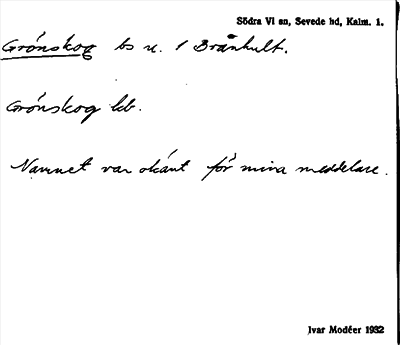 Södra Vi sn, Sevede hd, Kalm. l.
Grönskog bs u. 1 Brånhult.
Grönskog kb.
Namnet var okänt för mina meddelare.
Ivar Modéer 1932